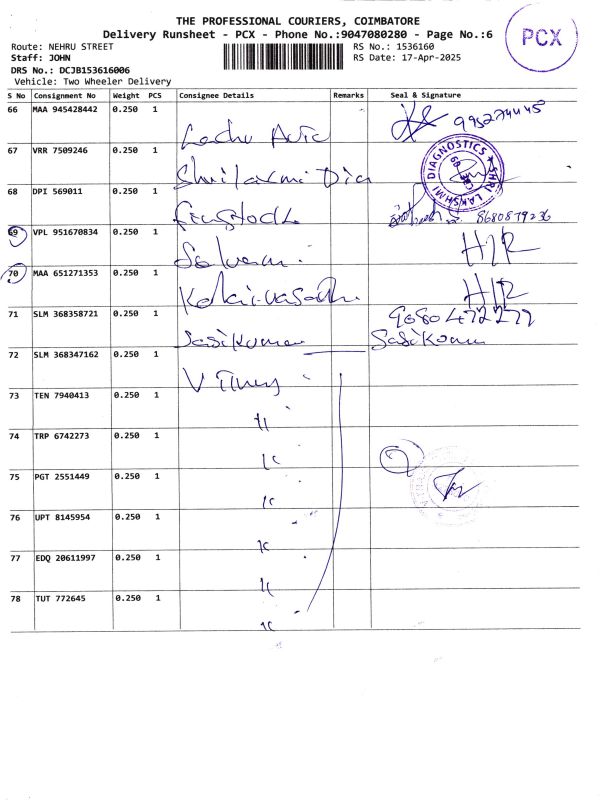 THE PROFESSIONAL COURIERS, COIMBATORE
Delivery Runsheet - PCX - Phone No.:9047080280 - Page No.:6
PCX
Route: NEHRU STREET
RS No.: 1536160
Staff: JOHN
RS Date: 17-Apr-2025
DRS No.: DCJB153616006
Vehicle: Two Wheeler Delivery
S No Consignment No Weight PCS Consignee Details Remarks Seal & Signature
66 MAA 945428442 0.250 1
67 VRR 7509246 0.250 1 Shrilaxmi Dia
SHRI LAKSHMI DIAGNOSTICS
68 DPI 569011 0.250 1 8680879236
69 VPL 951670834 0.250 1 Selvam H/R
70 MAA 651271353 0.250 1 H/R
71 SLM 368358721 0.250 1 Sasikumar 9080472277
Sasikumar
72 SLM 368347162 0.250 1
73 TEN 7940413 0.250 1 "
74 TRP 6742273 0.250 1 "
75 PGT 2551449 0.250 1 "
76 UPT 8145954 0.250 1 "
77 EDQ 20611997 0.250 1 "
78 TUT 772645 0.250 1 "